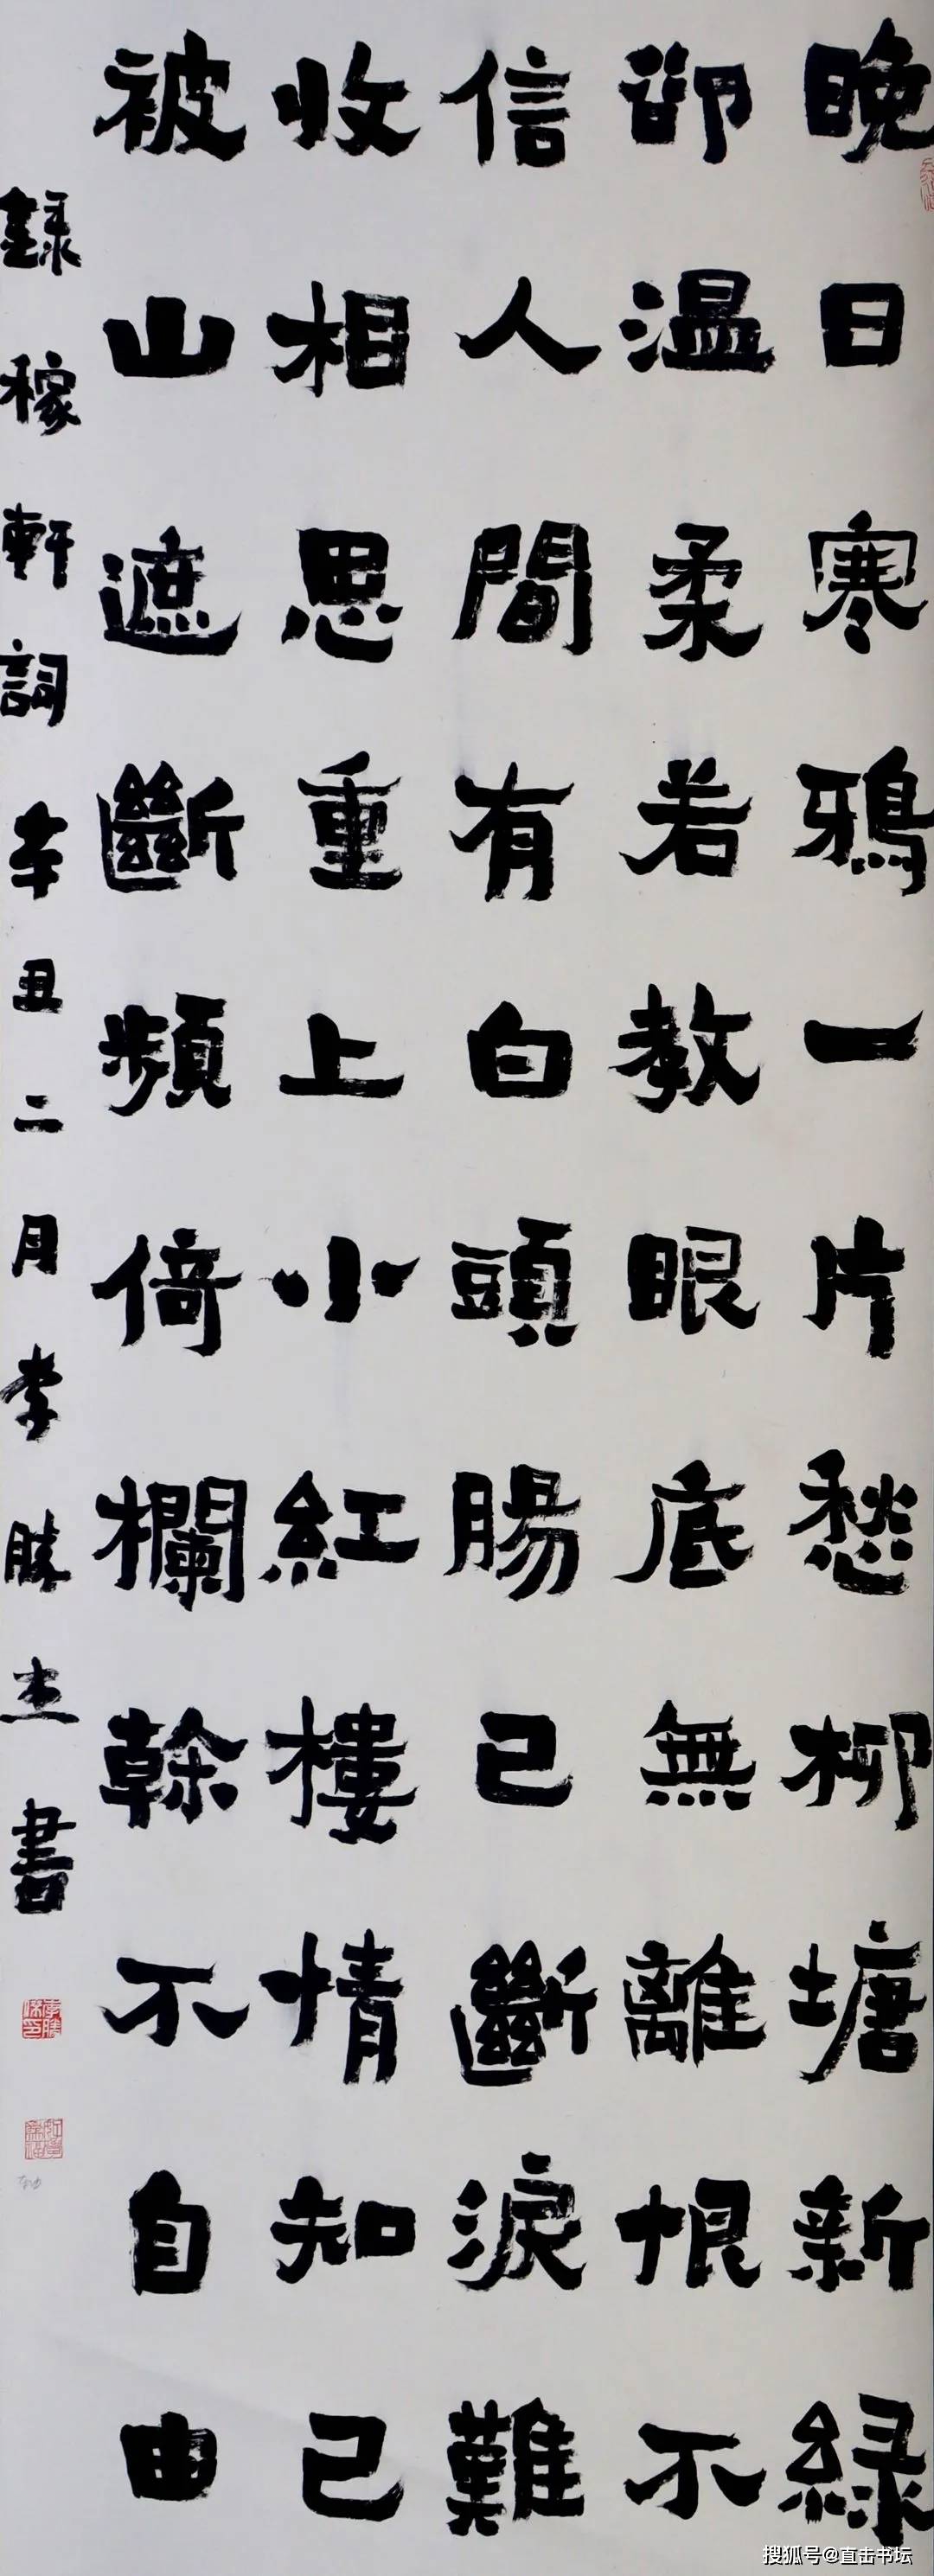 晚日寒鴉一片愁柳塘新綠
卻温柔若教眼底無離恨不
信人間有白頭腸已斷淚難
收相思重上小紅樓情知已
被山遮斷頻倚欄幹不自由
錄稼軒詞辛丑二月李勝書
搜狐号@直击书坛